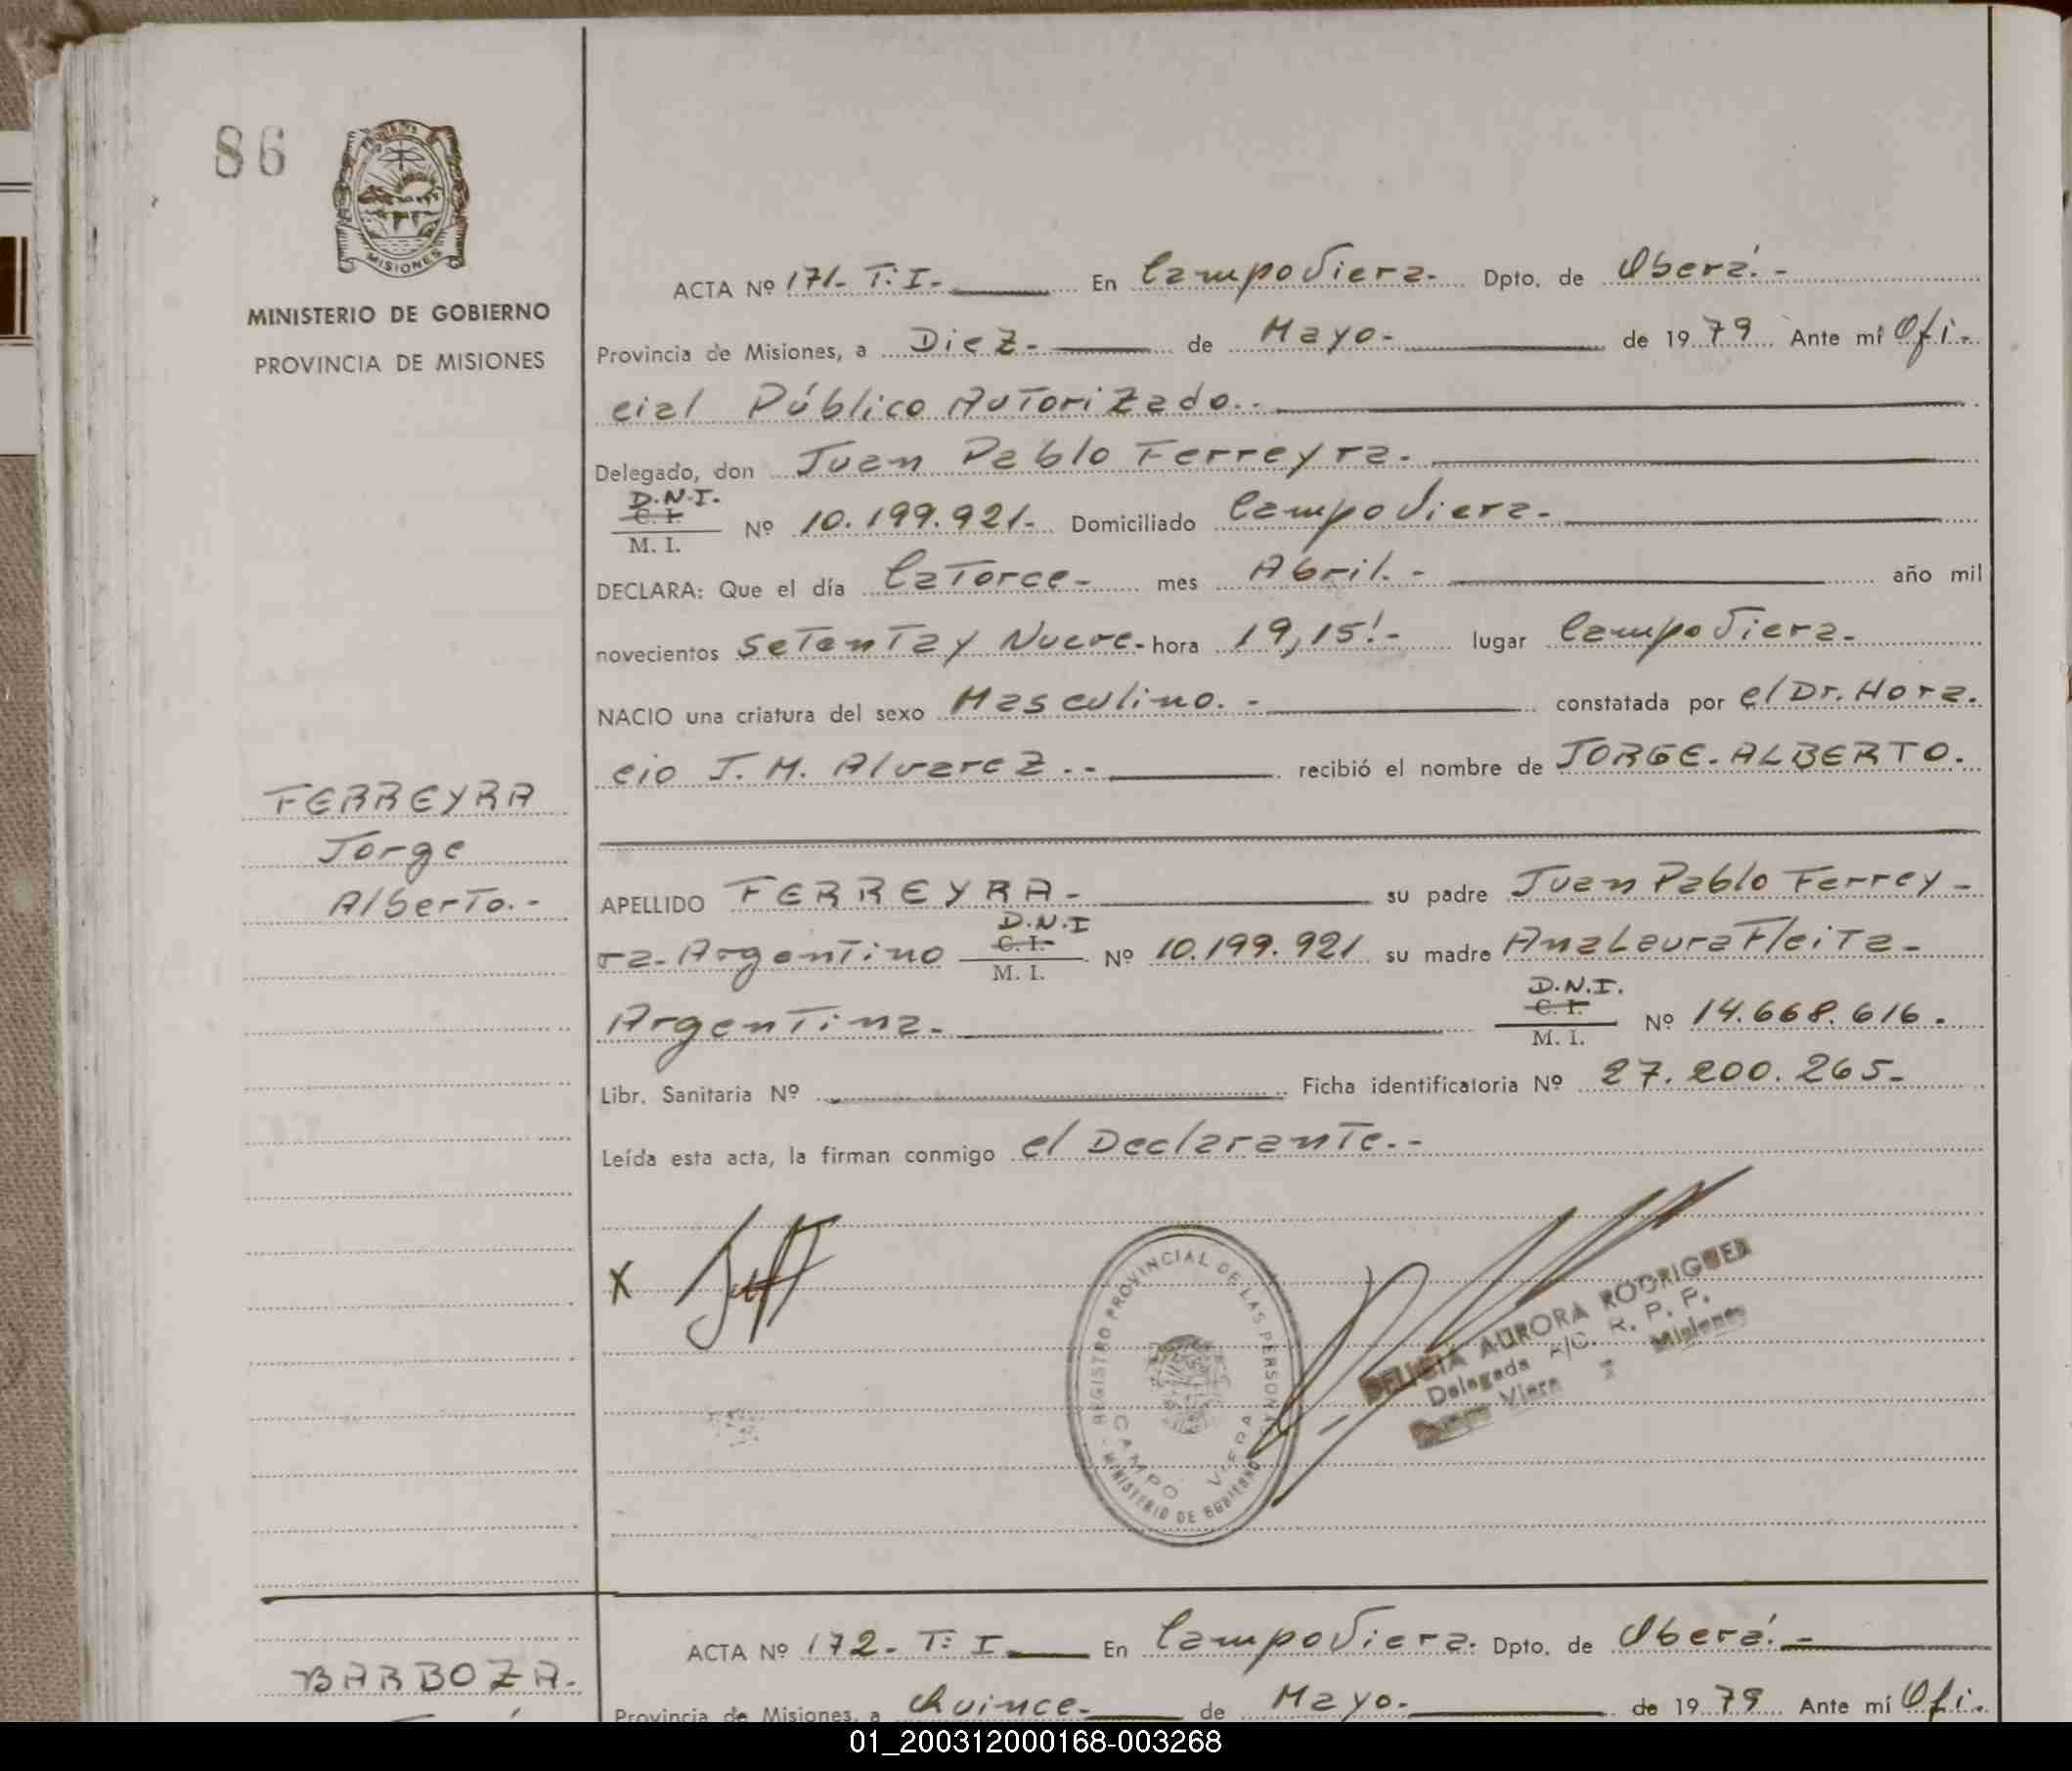 86
MISIONES
MINISTERIO DE GOBIERNO
PROVINCIA DE MISIONES
FERREYRA
Jorge
Alberto.-
ACTA Nº 171- T: I- En Campo Viera- Dpto. de Oberá.-
Provincia de Misiones, a Diez- de Mayo- de 1979 Ante mí Ofi-
cial Público Autorizado.-
Delegado, don Juan Pablo Ferreyra.
D.N.I.
C. I.
M. I. Nº 10.199.921- Domiciliado Campo Viera-
DECLARA: Que el día Catorce- mes Abril.- año mil
novecientos Setenta y Nueve- hora 19,15'- lugar Campo Viera-
NACIO una criatura del sexo Masculino.- constatada por el Dr. Hora-
cio J. M. Alvarez.- recibió el nombre de JORGE-ALBERTO.
APELLIDO FERREYRA- su padre Juan Pablo Ferrey-
D.N.I
ra-Argentino C. I. Nº 10.199.921 su madre Ana Laura Fleita-
M. I.
D.N.I.
Argentina- C. I. Nº 14.668.616.
M. I.
Libr. Sanitaria Nº Ficha identificatoria Nº 27.200.265-
Leída esta acta, la firman conmigo el Declarante.-
X
REGISTRO PROVINCIAL DE LAS PERSONAS
CAMPO VIERA
MINISTERIO DE GOBIERNO
DELICIA AURORA RODRIGUEZ
Delegada A/C. R. P. P.
Viera Misiones
BARBOZA.
ACTA Nº 172- T: I- En Campo Viera. Dpto. de Oberá.-
Provincia de Misiones, a Quince- de Mayo- de 1979 Ante mí Ofi-
01_200312000168-003268